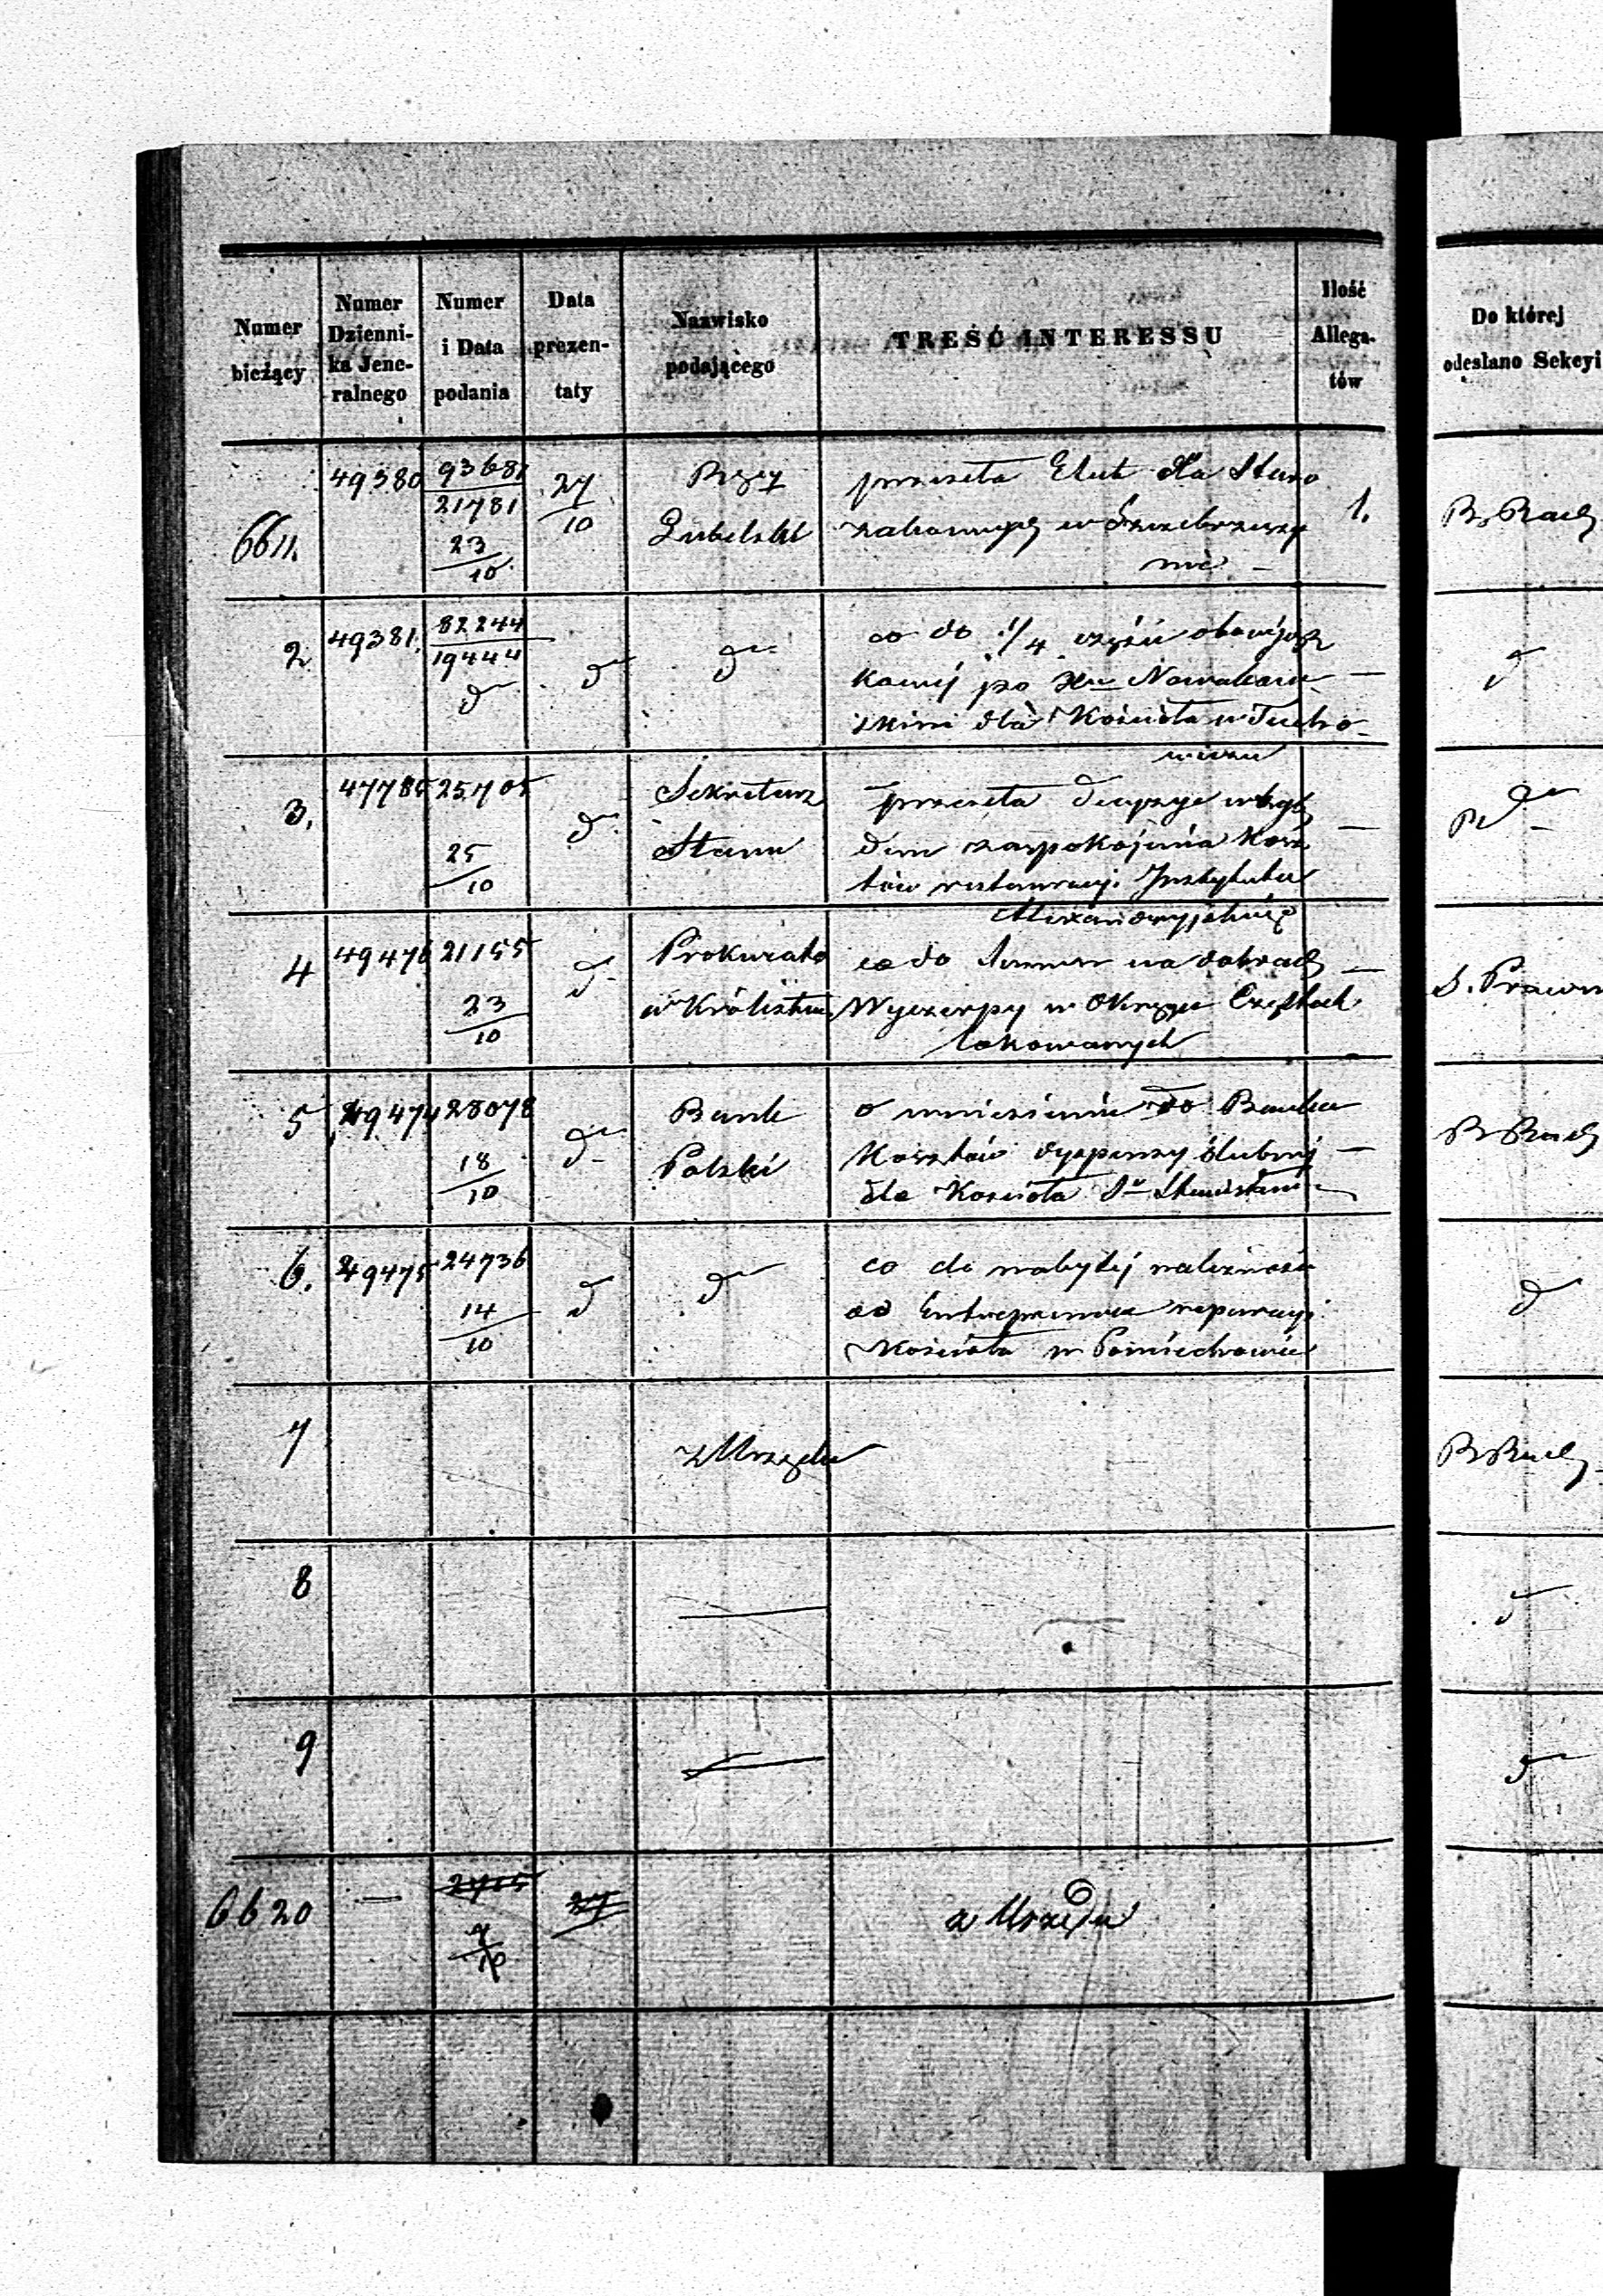 Numer bieżący | Numer Dziennika Jeneralnego | Numer i Data podania | Data prezentaty | Nazwisko podającego | TREŚĆ INTERESSU | Ilość Allegatów | Do której odesłano Sekcyi
6611. | 49380 | 93681
21781
23/10 | 27/10 | Rząd
Lubelski | przesyła Etat dla Staro
zakonnych w Szczebrzeszy
nie | 1.
2 | 49381. | 82244
19444
d° | d° | d° | co do 1/4 części
po Xu Nowakow
skim dla Kościoła w Tucho
wiczu | — | d°
3. | 47785 | 25705
25/10 | d° | Sekretarz
Stanu | przesyła decyzye wzglę
dem zaspokojenia Kosz
tów restauracyi Instytutu
— | d°
4 | 49476 | 21155
23/10 | d° | Prokurator
w Królestwie | co do summ na dobrach
Wyczerpy w Okręgu Częstoch
lokowanych | — | S. Prawn
5 | 49474 | 28078
18/10 | d° | Bank
Polski | o wniesienie do Banku
Kosztów dyspensy ślubnej
dla Kościoła Sgo Stanisława | —
6. | 49475 | 24736
14/10 | d° | d° | co do nabytej należności
od Entreprenera reparacyi
Kościoła w Pomiechowie | d°
7 | z Urzędu
8 | — | d°
9 | — | d°
6620 | — | 2715
7/10 | 27 | z Urzędu